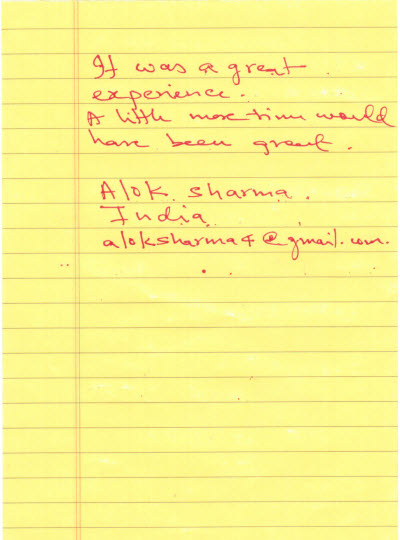 It was a great
experience.
A little more time would
have been great.
Alok sharma.
India
aloksharma4@gmail.com.